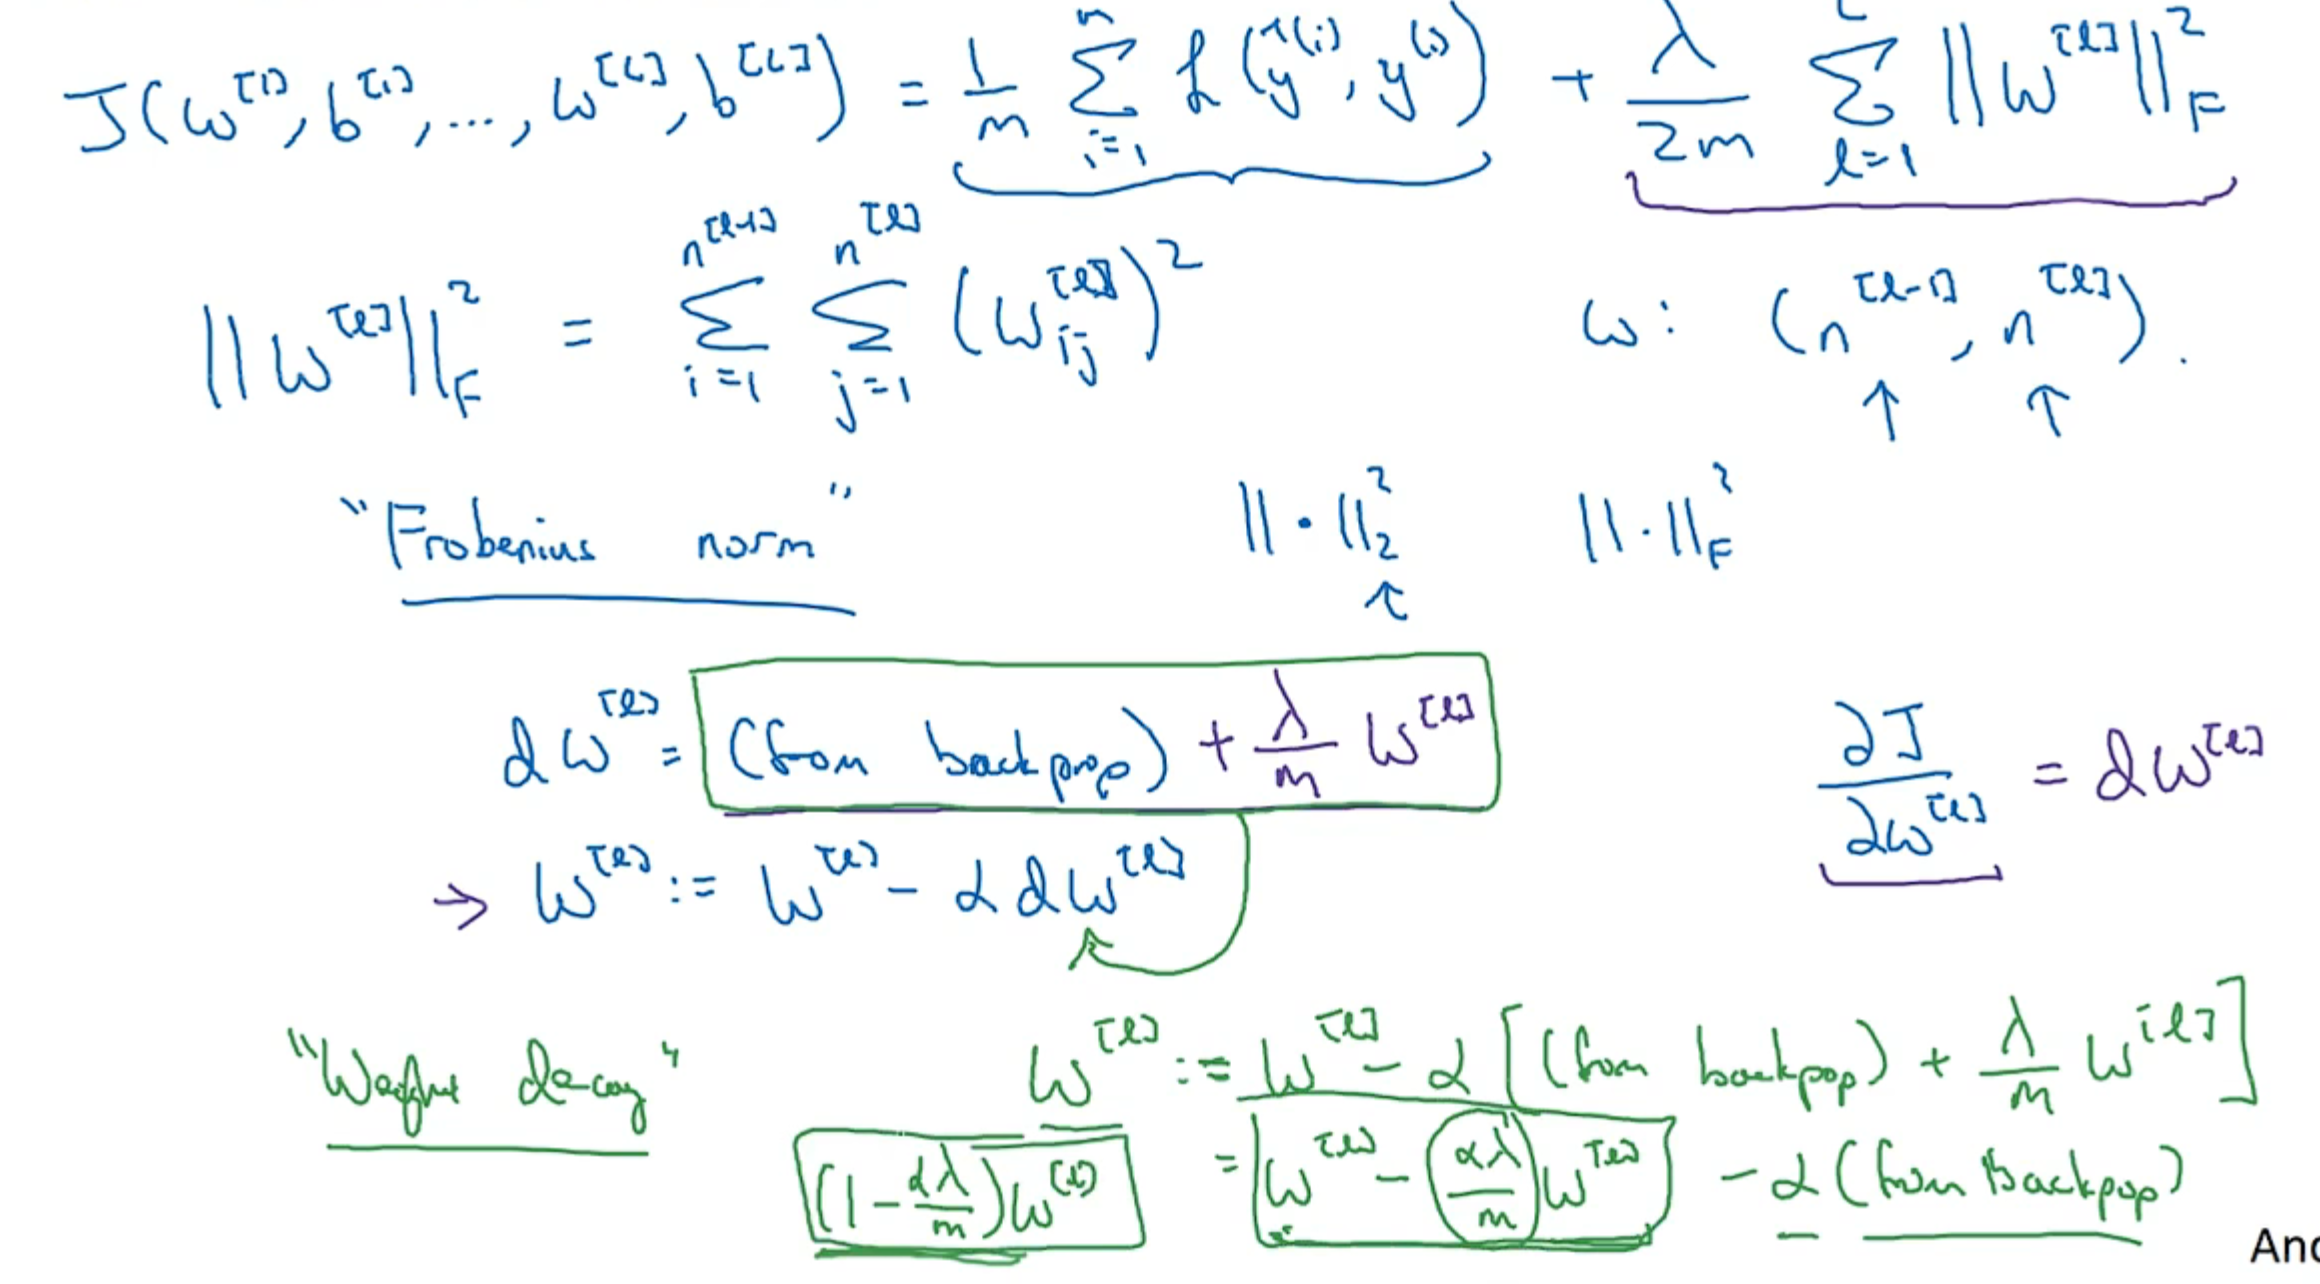 J(w^[1], b^[1], ..., w^[L], b^[L]) = 1/m Σ_{i=1}^{m} ℒ(ŷ^(i), y^(i)) + λ/2m Σ_{l=1}^{L} ||w^[l]||_F^2
||w^[l]||_F^2 = Σ_{i=1}^{n^[l-1]} Σ_{j=1}^{n^[l]} (w_ij^[l])^2    w: (n^[l-1], n^[l]).
"Frobenius norm"    ||·||_2^2    ||·||_F^2
dw^[l] = (from backprop) + λ/m w^[l]    ∂J/∂w^[l] = dw^[l]
→ w^[l] := w^[l] - α dw^[l]
"Weight decay"    w^[l] := w^[l] - α[(from backpop) + λ/m w^[l]]
(1 - αλ/m) w^[l]    = w^[l] - αλ/m w^[l] - α(from backpop)